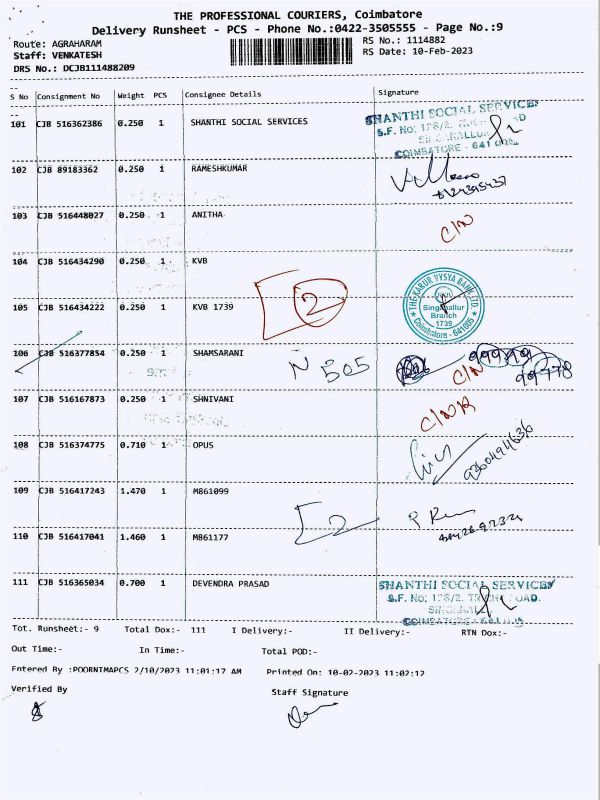 THE PROFESSIONAL COURIERS, Coimbatore
Delivery Runsheet - PCS - Phone No.:0422-3505555 - Page No.:9
Route: AGRAHARAM RS No.: 1114882
Staff: VENKATESH RS Date: 10-Feb-2023
DRS No.: DCJB111488209
S No Consignment No Weight PCS Consignee Details Signature
101 CJB 516362386 0.250 1 SHANTHI SOCIAL SERVICES SHANTHI SOCIAL SERVICES
S.F. No:
COIMBATORE - 641
102 CJB 89183362 0.250 1 RAMESHKUMAR
103 CJB 516448027 0.250 1 ANITHA C/N
104 CJB 516434290 0.250 1 KVB
105 CJB 516434222 0.250 1 KVB 1739 2 THE KARUR VYSYA BANK LTD. Singanallur Branch 1739 Coimbatore - 641005
106 CJB 516377854 0.250 1 SHAMSARANI N 505 C/N
107 CJB 516167873 0.250 1 SHNIVANI C/NR
108 CJB 516374775 0.710 1 OPUS 9360494636
109 CJB 516417243 1.470 1 M861099
2
110 CJB 516417041 1.460 1 M861177
111 CJB 516365034 0.700 1 DEVENDRA PRASAD SHANTHI SOCIAL SERVICES
S.F. No:
Tot. Runsheet:- 9 Total Dox:- 111 I Delivery:- II Delivery:- RTN Dox:-
Out Time:- In Time:- Total POD:-
Entered By :POORNIMAPCS 2/10/2023 11:01:17 AM Printed On: 10-02-2023 11:02:12
Verified By Staff Signature